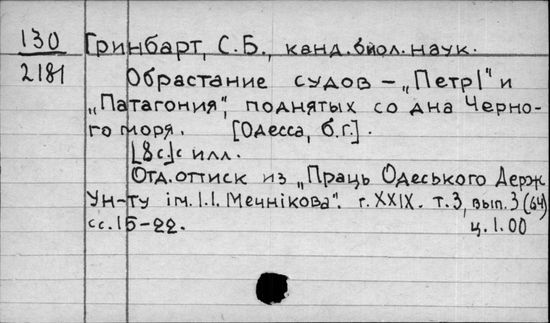 130 Гринбарт, С.Б., канд. биол. наук.
2181 Обрастание судов – „Петр I" и
„Патагония", поднятых со дна Черно-
го моря. [Одесса, б.г.].
[8 с.] с илл.
Отд. оттиск из „Праць Одеського Держ
Ун-ту ім. І.І. Мечнікова". г. XXIX. т.3, вып. 3 (64)
сс. 15-22. ц. 1.00